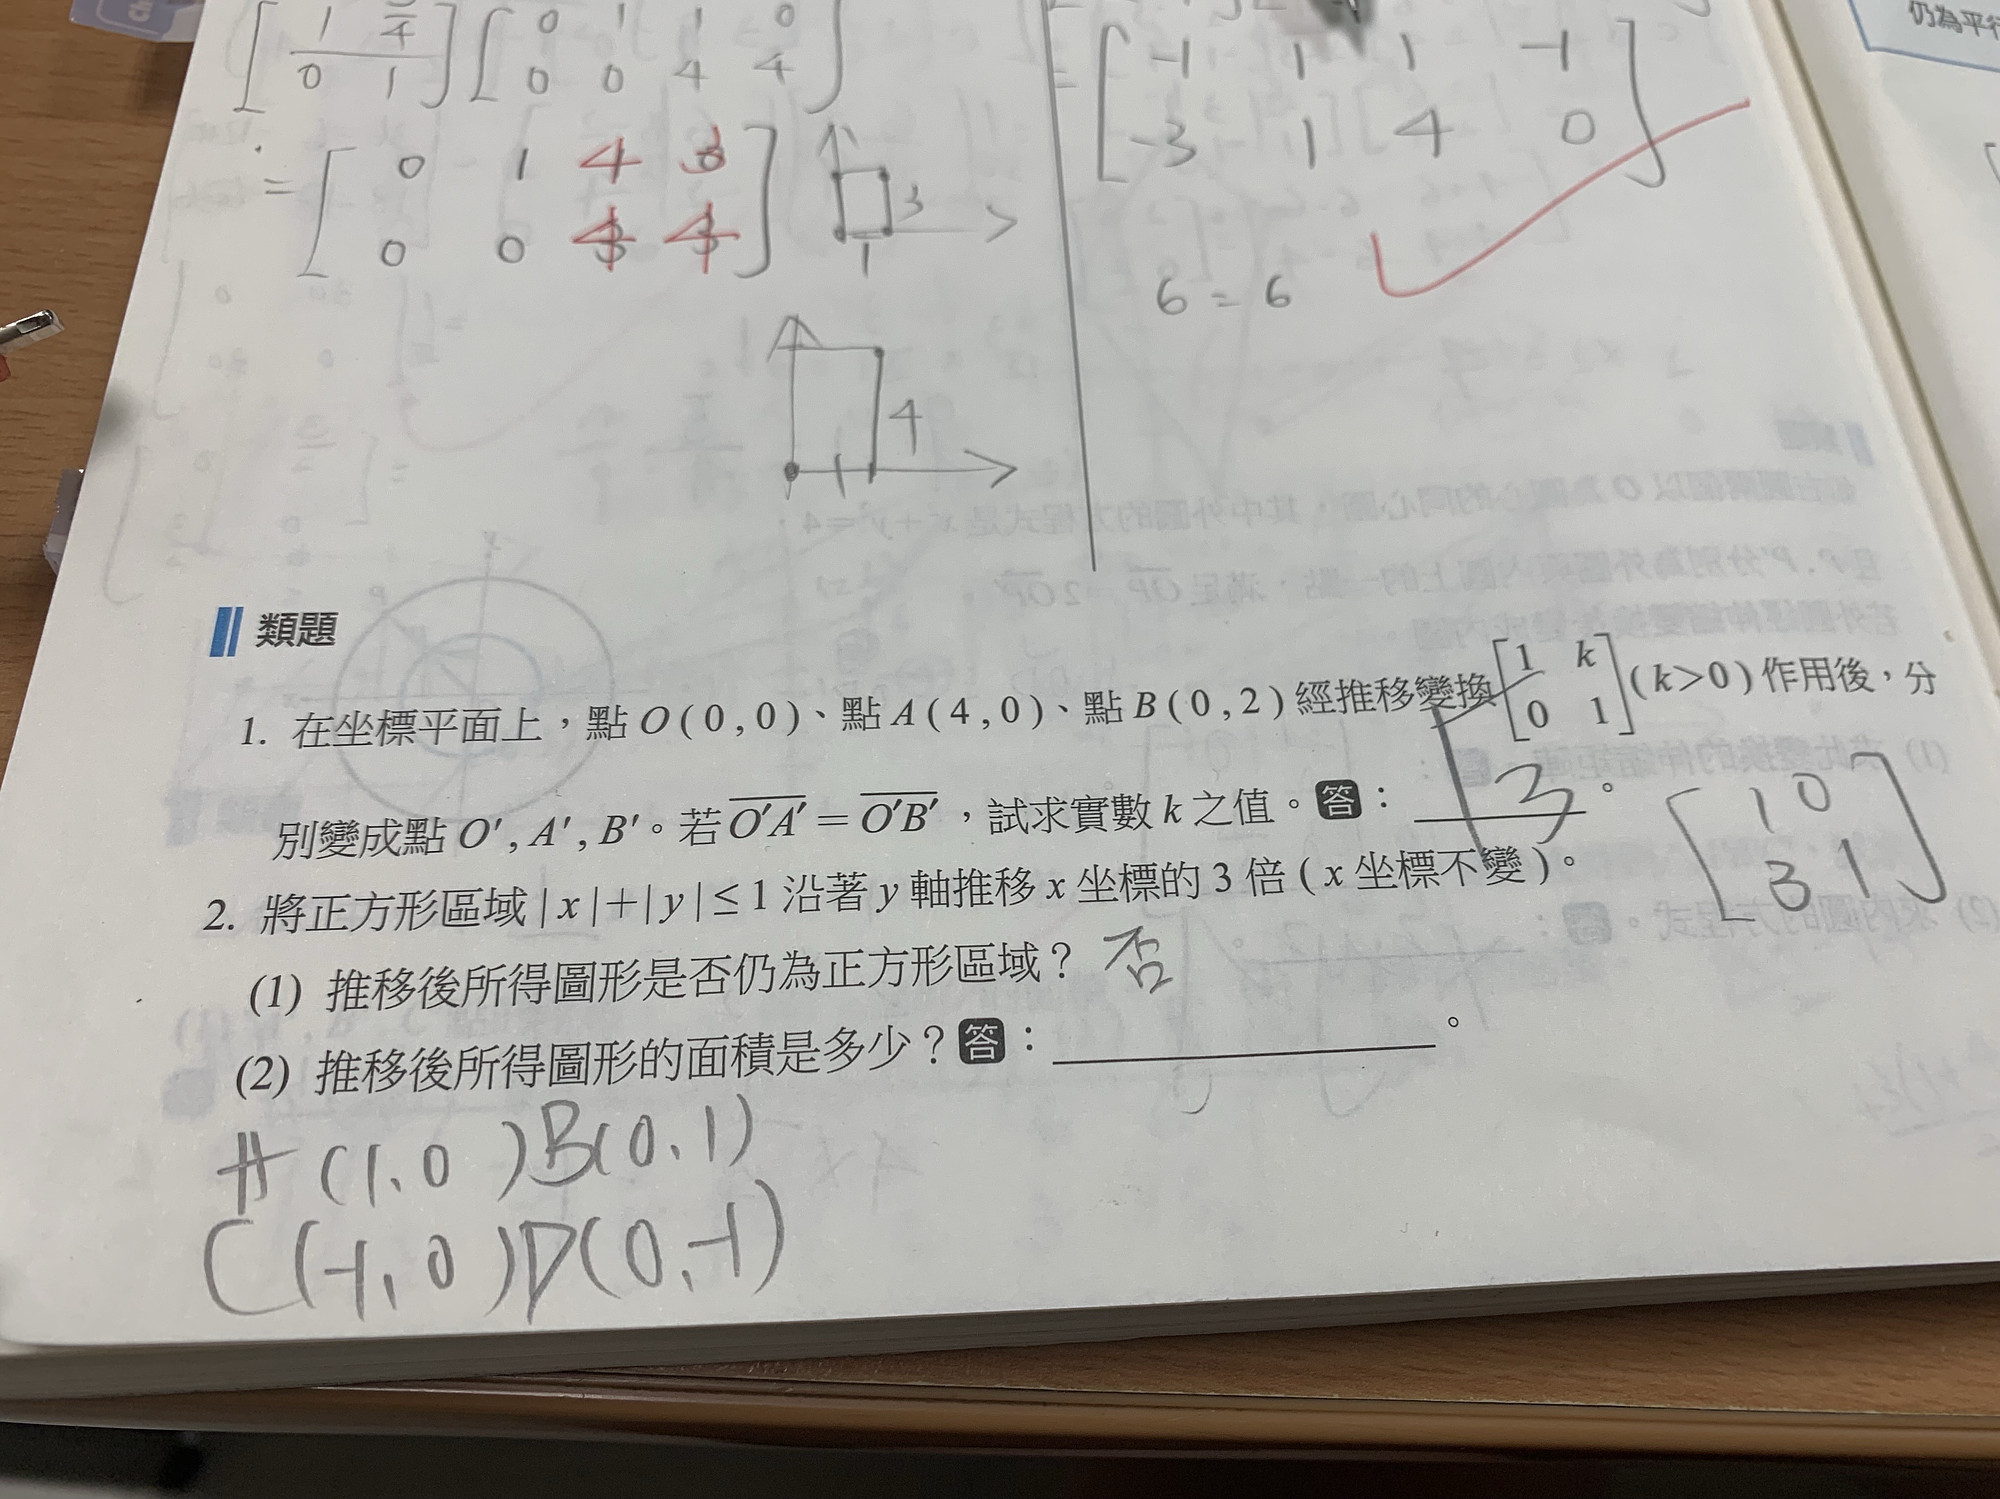 [1 3/4
0 1] [0 1 1 0
0 0 4 4]
= [0 1 4 3
0 0 4 4]
3
1
4
= [-1 1 1 -1
-3 1 4 0]
6 = 6
仍為平行
類題
1. 在坐標平面上，點 O(0,0)、點 A(4,0)、點 B(0,2) 經推移變換 [1 k
0 1] (k>0) 作用後，分
別變成點 O′, A′, B′。若 O′A′ = O′B′，試求實數 k 之值。答：3。
[1 0
3 1]
2. 將正方形區域 |x|+|y|≤1 沿著 y 軸推移 x 坐標的 3 倍 (x 坐標不變)。
(1) 推移後所得圖形是否仍為正方形區域？ 否
(2) 推移後所得圖形的面積是多少？答：。
A(1,0) B(0,1)
C(-1,0) D(0,-1)